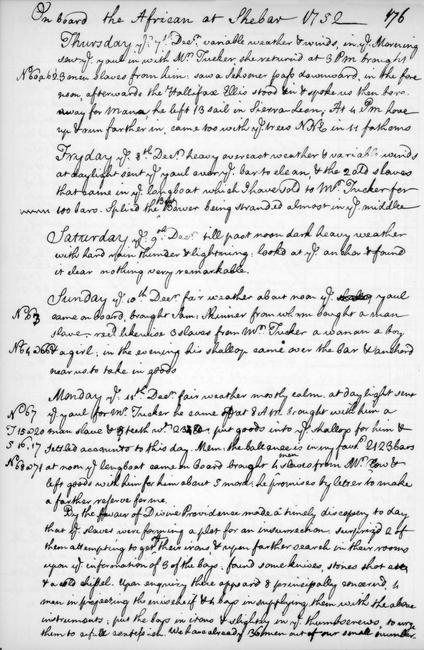 On board the African at Shebar 1752 176
Thursday yᵉ 7ᵗʰ Decʳ variable weather & winds, in yᵉ Morning
sent yᵉ yaul in with Mʳ Tucker, she returnd at 3 PM brought
No 60 a 62 3 men slaves from him: saw a Schoner pass downward, in the fore
noon, afterwards the Hallifax Ellis stood in & spoke us then bore
away for Mana, he left 13 sail in Sierra Leon, At 4 PM hove
up & run farther in, came too with yᵉ trees NNE in 11 fathoms
Fryday yᵉ 8ᵗʰ Decʳ heavy overcast weather & variable winds
at daylight sent yᵉ yaul over yᵉ bar to clean, & the 2 old slaves
that came in yᵉ longboat which I have sold to Mʳ Tucker for
100 bars. Splied the Bᵗ Bower being stranded almost in yᵉ middle
Saturday yᵉ 9ᵗʰ Decʳ till past noon dark heavy weather
with hard rain thunder & lightning: lookd at yᵉ anchor & found
it clear nothing very remarkable.
Sunday yᵉ 10ᵗʰ Decʳ fair weather about noon yᵉ yaul
came on board, brought Sam: Skinner from whom bought a man
No 63
slave recd likewise 3 slaves from Mʳ Tucker a woman a boy
No 64 a 66 & a girl; in the evening his shallop came over the bar & anchord
near us to take in goods
Monday yᵉ 11ᵗʰ Decʳ fair weather mostly calm, at daylight sent
No 67 yᵉ yaul for Mʳ Tucker he came off at 8 AM brought with him a
T 15 a 20 man slave & teeth wᵗ put goods into yᵉ shallop for him &
S 16, 17 settled accounts to this day. Mem: the ballance is in my favʳ 2123 bars
No 68 a 71 at noon yᵉ longboat came on board brought 4 men slaves from Mʳ &
left goods with him for about 5 more: he promises by letter to make
a farther reserve for me.
By the favour of Divine Providence made a timely discovery to day
that yᵉ slaves were forming a plot for an insurrection. Surprizd 2 of
them attempting to get off their irons & upon farther search in their rooms
upon yᵉ information of 3 of the boys: found some knives, stones shot etc
& a cold chisel. Upon enquiry there appeard 8 principally concernd, 4
men in projecting the mischeif & 4 boys in supplying them with the above
instruments; put the boys in irons & slightly in yᵉ thumbscrews, to urge
them to a full confession. We have already 36 men out of our small number.